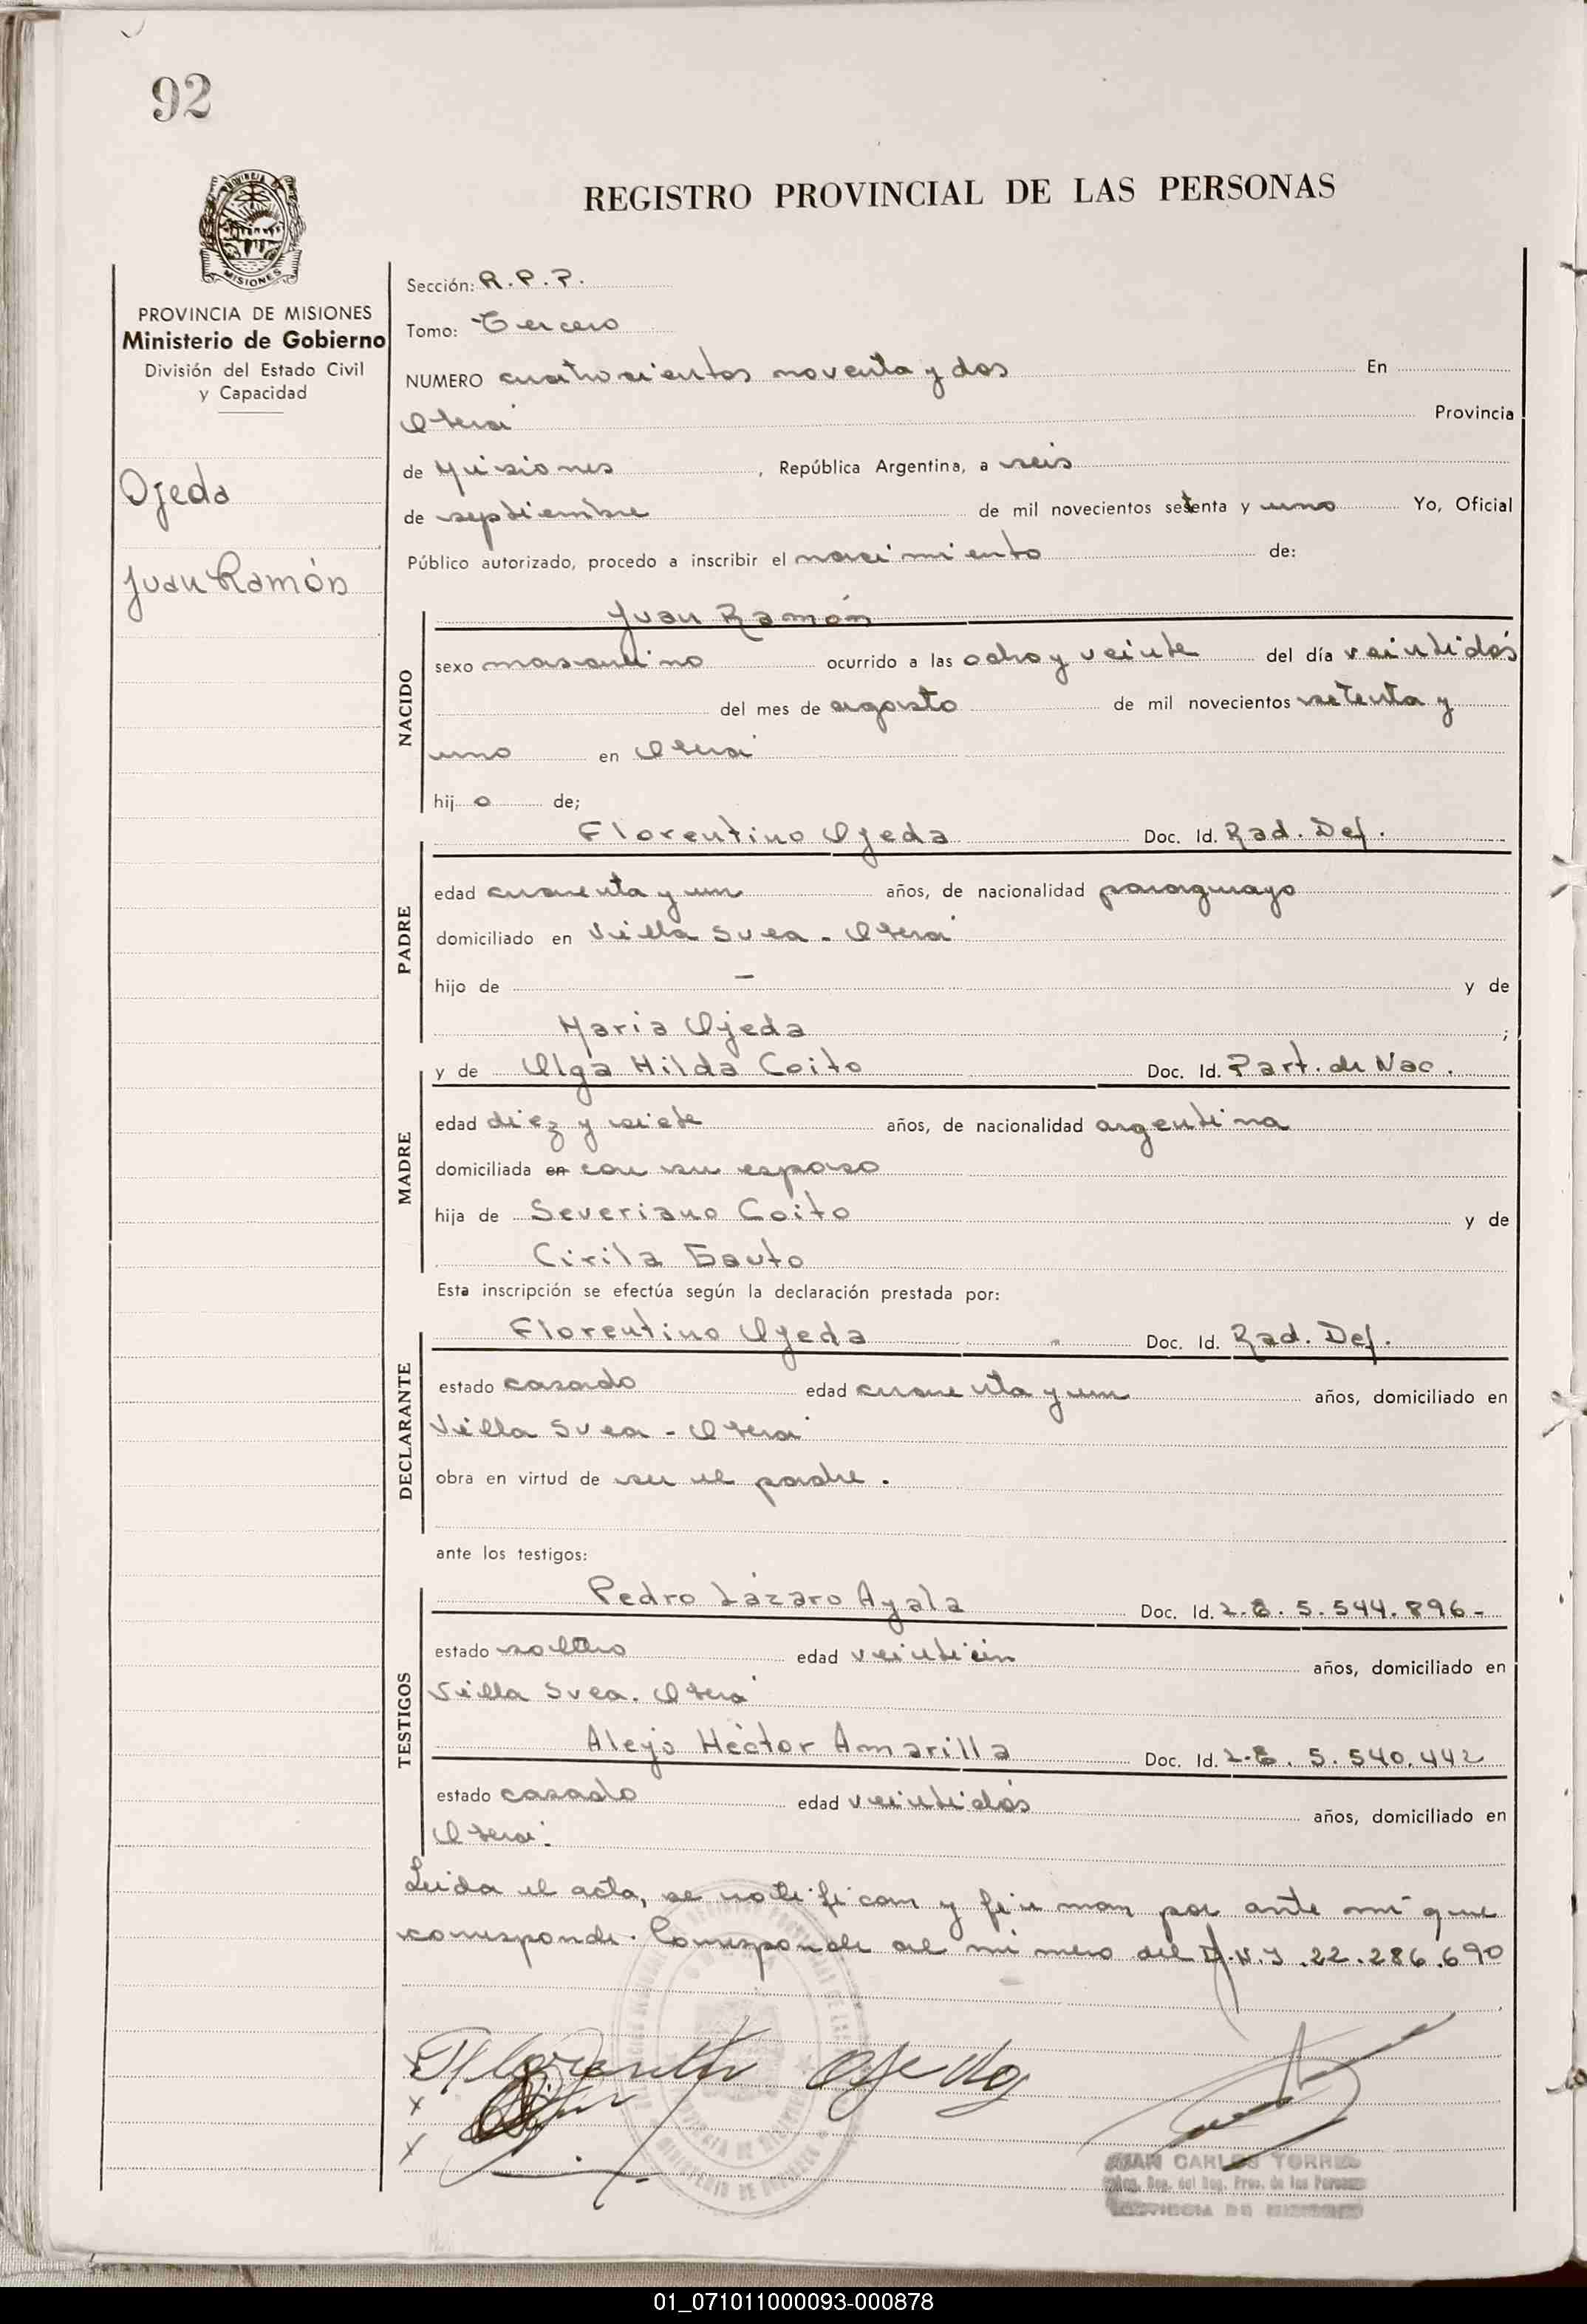 92
REGISTRO PROVINCIAL DE LAS PERSONAS
PROVINCIA DE MISIONES
Ministerio de Gobierno
División del Estado Civil
y Capacidad
Ojeda
Juan Ramón
Sección: R.P.P.
Tomo: Tercero
NUMERO cuatrocientos noventa y dos En
Oberá Provincia
de Misiones, República Argentina, a seis
de septiembre de mil novecientos setenta y uno Yo, Oficial
Público autorizado, procedo a inscribir el nacimiento de:
NACIDO
Juan Ramón
sexo masculino ocurrido a las ocho y veinte del día veintidós
del mes de agosto de mil novecientos setenta y
uno en Oberá
hijo de;
PADRE
Florentino Ojeda Doc. Id. Rad. Def.
edad cuarenta y un años, de nacionalidad paraguayo
domiciliado en Villa Svea - Oberá
hijo de — y de
Maria Ojeda ;
MADRE
y de Olga Hilda Coito Doc. Id. Part. de Nac.
edad diez y siete años, de nacionalidad argentina
domiciliada en con su esposo
hija de Severiano Coito y de
Cirila Gauto
Esta inscripción se efectúa según la declaración prestada por:
DECLARANTE
Florentino Ojeda Doc. Id. Rad. Def.
estado casado edad cuarenta y un años, domiciliado en
Villa Svea - Oberá
obra en virtud de ser el padre.
ante los testigos:
TESTIGOS
Pedro Lázaro Ayala Doc. Id. L.E. 5.544.896-
estado soltero edad años, domiciliado en
Villa Svea. Oberá
Alejo Héctor Amarilla Doc. Id. L.E. 5.540.442
estado casado edad veintidós años, domiciliado en
Oberá.
Leida el acta, se notifican y firman por ante mí que
corresponde. Corresponde al número del D.N.I. 22.286.690
Ojeda
JUAN CARLOS TORRES
Reg. Prov. de las Personas
PROVINCIA DE MISIONES
01_071011000093-000878